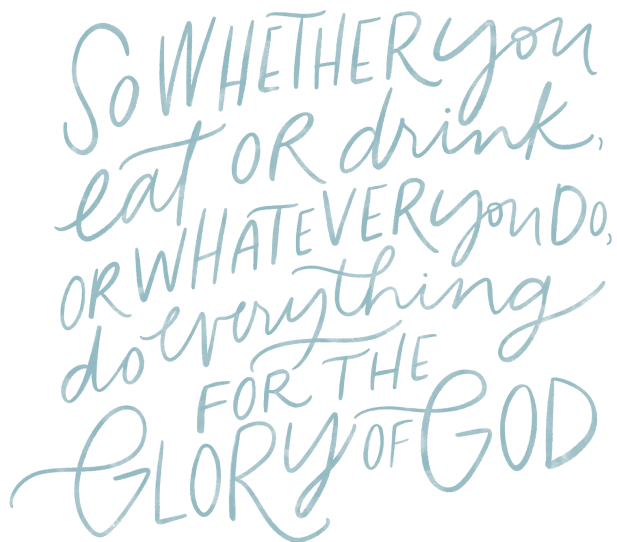 So WHETHER you
eat OR drink,
OR WHATEVER you DO,
do everything
FOR THE
GLORY OF GOD